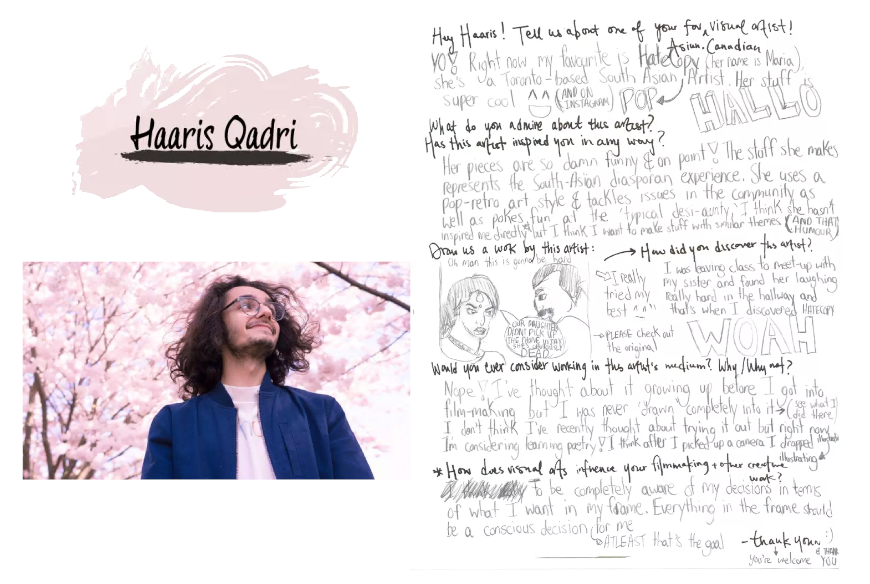 Haaris Qadri
Hey Haaris! Tell us about one of your fav visual artist!
YO! Right now my favourite is HateCopy (Her name is Maria),
She's a Toronto-based South Asian Artist. Her stuff is
Asian-Canadian
super cool ^^ (AND ON INSTAGRAM) POP HALLO
What do you admire about this artist?
Has this artist inspired you in any way?
Her pieces are so damn funny & on point! The stuff she makes
represents the South-Asian diasporan experience. She uses a
pop-retro art style & tackles issues in the community as
well as pokes fun at the 'typical desi-aunty'. I think she hasn't
inspired me directly but I think I want to make stuff with similar themes (AND THAT HUMOUR)
Draw us a work by this artist:
Oh man this is gonna be hard
OUR DAUGHTER
DIDN'T PICK UP
THE PHONE
DEAD
I really
tried my
best ^^
PLEASE check out
the original
How did you discover this artist?
I was leaving class to meet-up with
my sister and found her laughing
really hard in the hallway and
that's when I discovered HATECOPY
WOAH
Would you ever consider working in this artist's medium? Why/Why not?
Nope! I've thought about it growing up before I got into
film-making but I was never 'drawn' completely into it (see what I did there)
I don't think I've recently thought about trying it out but right now
Im considering learning poetry! I think after I picked up a camera I dropped
illustrating
* How does visual arts influence your filmmaking + other creative
work?
to be completely aware of my decisions in terms
of what I want in my frame. Everything in the frame should
be a conscious decision for me
ATLEAST that's the goal
- thank you :)
you're welcome & THANK YOU